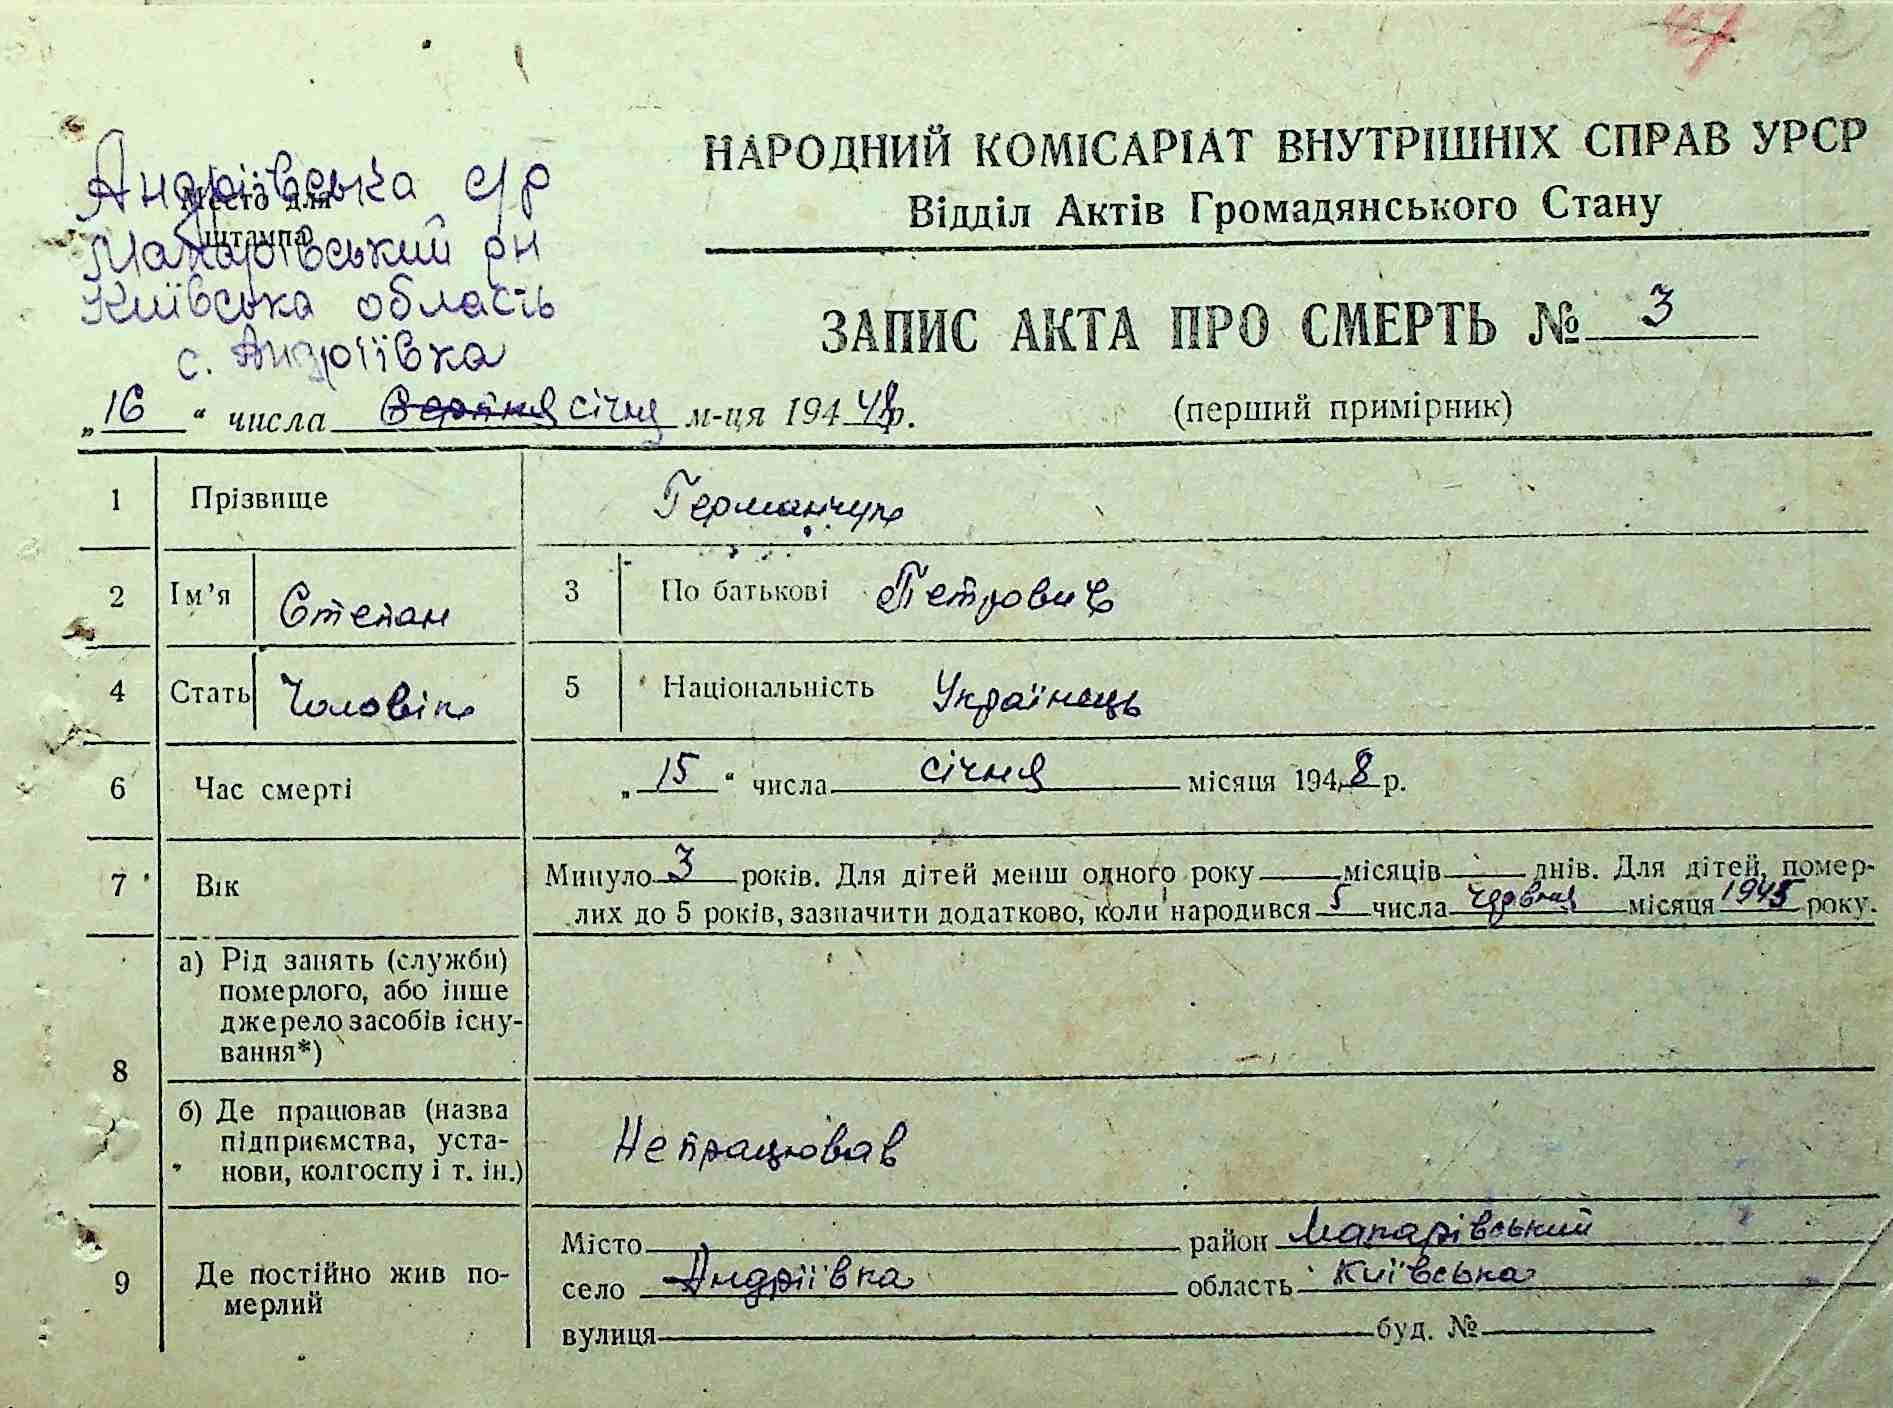 47
НАРОДНИЙ КОМІСАРІАТ ВНУТРІШНІХ СПРАВ УРСР
Відділ Актів Громадянського Стану
Место для
штампа
Андріївська с/р
Макарівський рн
Київська область
с. Андріївка
ЗАПИС АКТА ПРО СМЕРТЬ № 3
(перший примірник)
„16“ числа січня м-ця 194 48р.
1 Прізвище Германчук
2 Ім’я Степан 3 По батькові Петрович
4 Стать Чоловік 5 Національність Українець
6 Час смерті „15“ числа січня місяця 1948 р.
7 Вік Минуло 3 років. Для дітей менш одного року місяців днів. Для дітей, помер-
лих до 5 років, зазначити додатково, коли народився 5 числа червня місяця 1945 року.
8 а) Рід занять (служби)
померлого, або інше
джерело засобів існу-
вання*)
б) Де працював (назва
підприємства, уста-
нови, колгоспу і т. ін.)
Не працював
9 Де постійно жив по-
мерлий
Місто район Макарівський
село Андріївка область Київська
вулиця буд. №